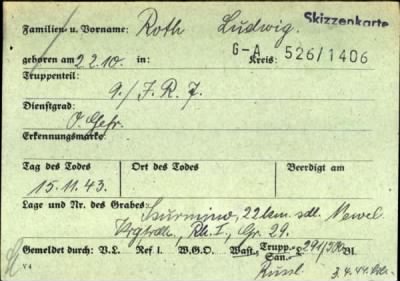 Skizzenkarte
Familien- u. Vorname: Roth Ludwig.
geboren am 2.2.10. in: Kreis: G-A 526/1406
Truppenteil:
9./J.R.7.
Dienstgrad:
O.Gefr.
Erkennungsmarke:
Tag des Todes Ort des Todes Beerdigt am
15.11.43.
Lage und Nr. des Grabes: 22 km sdl. Newel
Rh. I, Gr. 29.
Gemeldet durch: V.L. Ref I. W.G.O. Wast. Trupp. San. L. 291/500 Bl.
V 4 3.4.44.